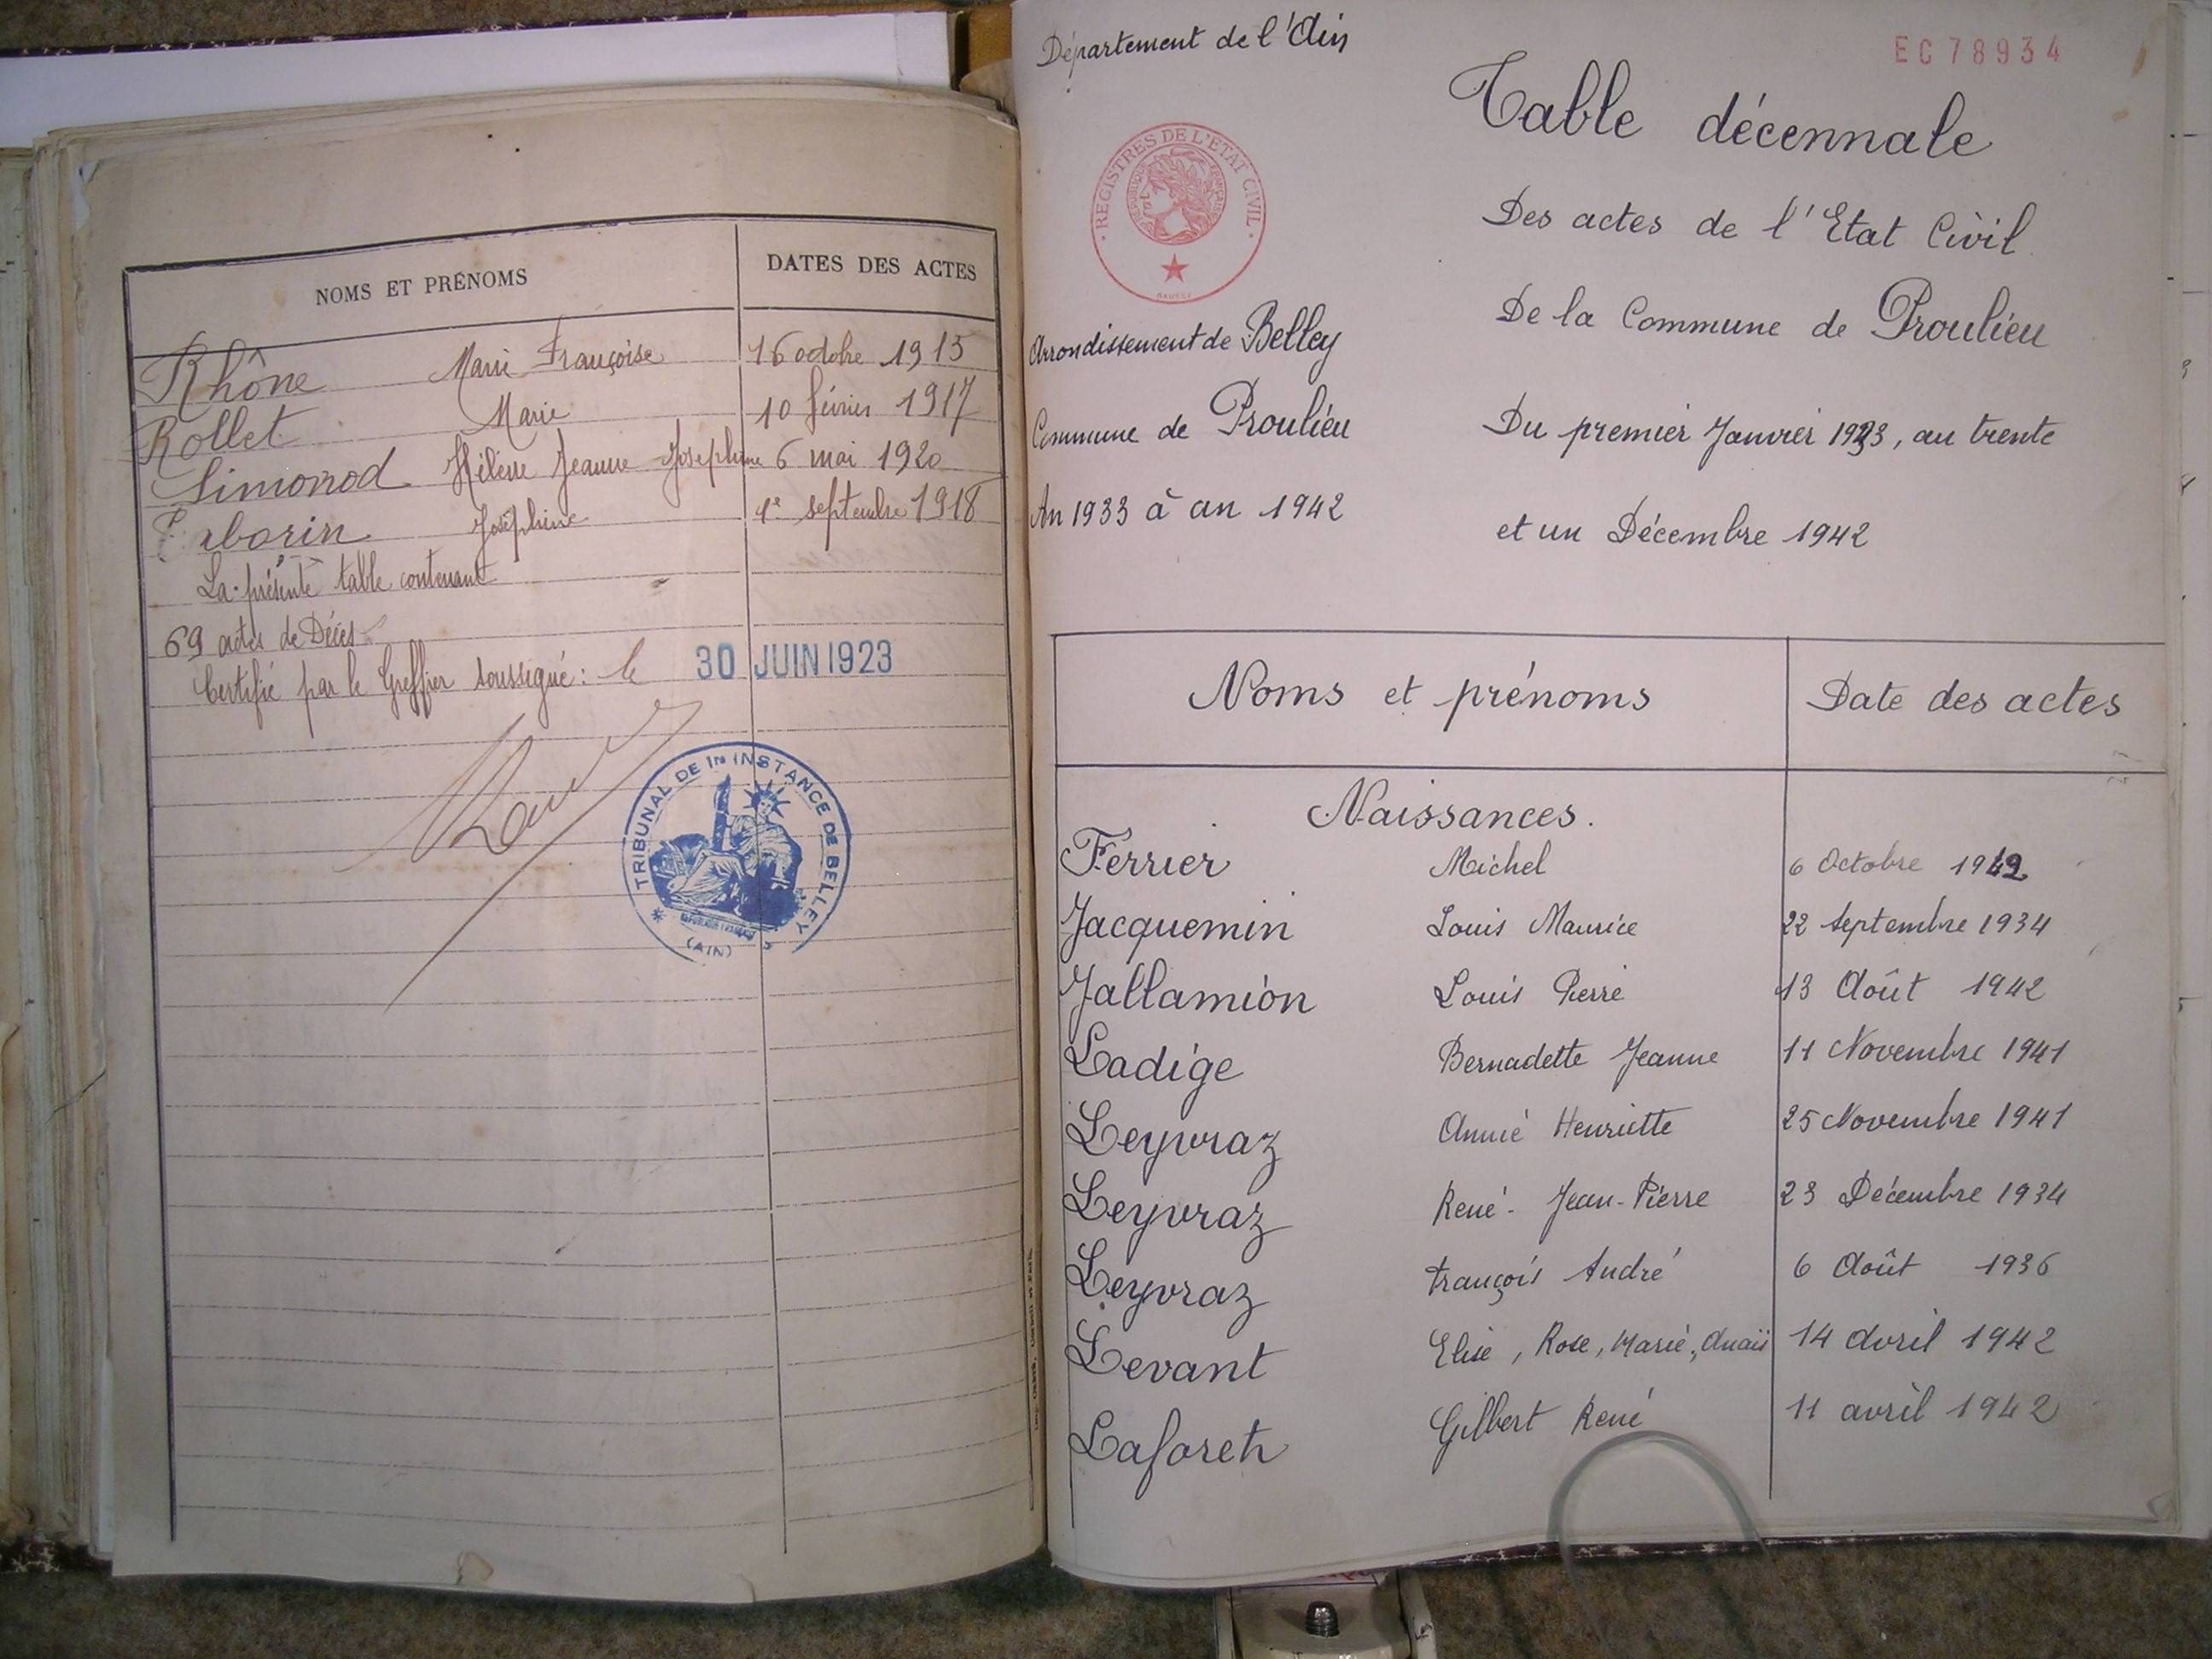 NOMS ET PRÉNOMS DATES DES ACTES
Rhône Marie Françoise 16 octobre 1915
Rollet Marie 10 février 1917
Simonod Hélène Jeanne Josephine 6 mai 1920
Joséphine 1er septembre 1918
La présente table contenant
69 actes de Décès
Certifié par le Greffier soussigné: le 30 JUIN 1923
TRIBUNAL DE 1re INSTANCE DE BELLEY
(AIN)
Département de l'Ain
EC 78934
Table décennale
REGISTRES DE L'ETAT CIVIL
REPUBLIQUE FRANÇAISE
Des actes de l'Etat Civil
De la Commune de Proulieu
Arrondissement de Belley
Commune de Proulieu
Du premier Janvier 1933, au trente
An 1933 à an 1942
et un Décembre 1942
Noms et prénoms Date des actes
Naissances.
Ferrier Michel 6 Octobre 1942
Jacquemin Louis Maurice 22 Septembre 1934
Jallamion Louis Pierre 13 Août 1942
Ladige Bernadette Jeanne 11 Novembre 1941
Leyvraz Annie Henriette 25 Novembre 1941
Leyvraz René-Jean-Pierre 23 Décembre 1934
Leyvraz François André 6 Août 1936
Levant Elise, Rose, Marie, Anaïs 14 Avril 1942
Laforeh Gilbert René 11 avril 1942